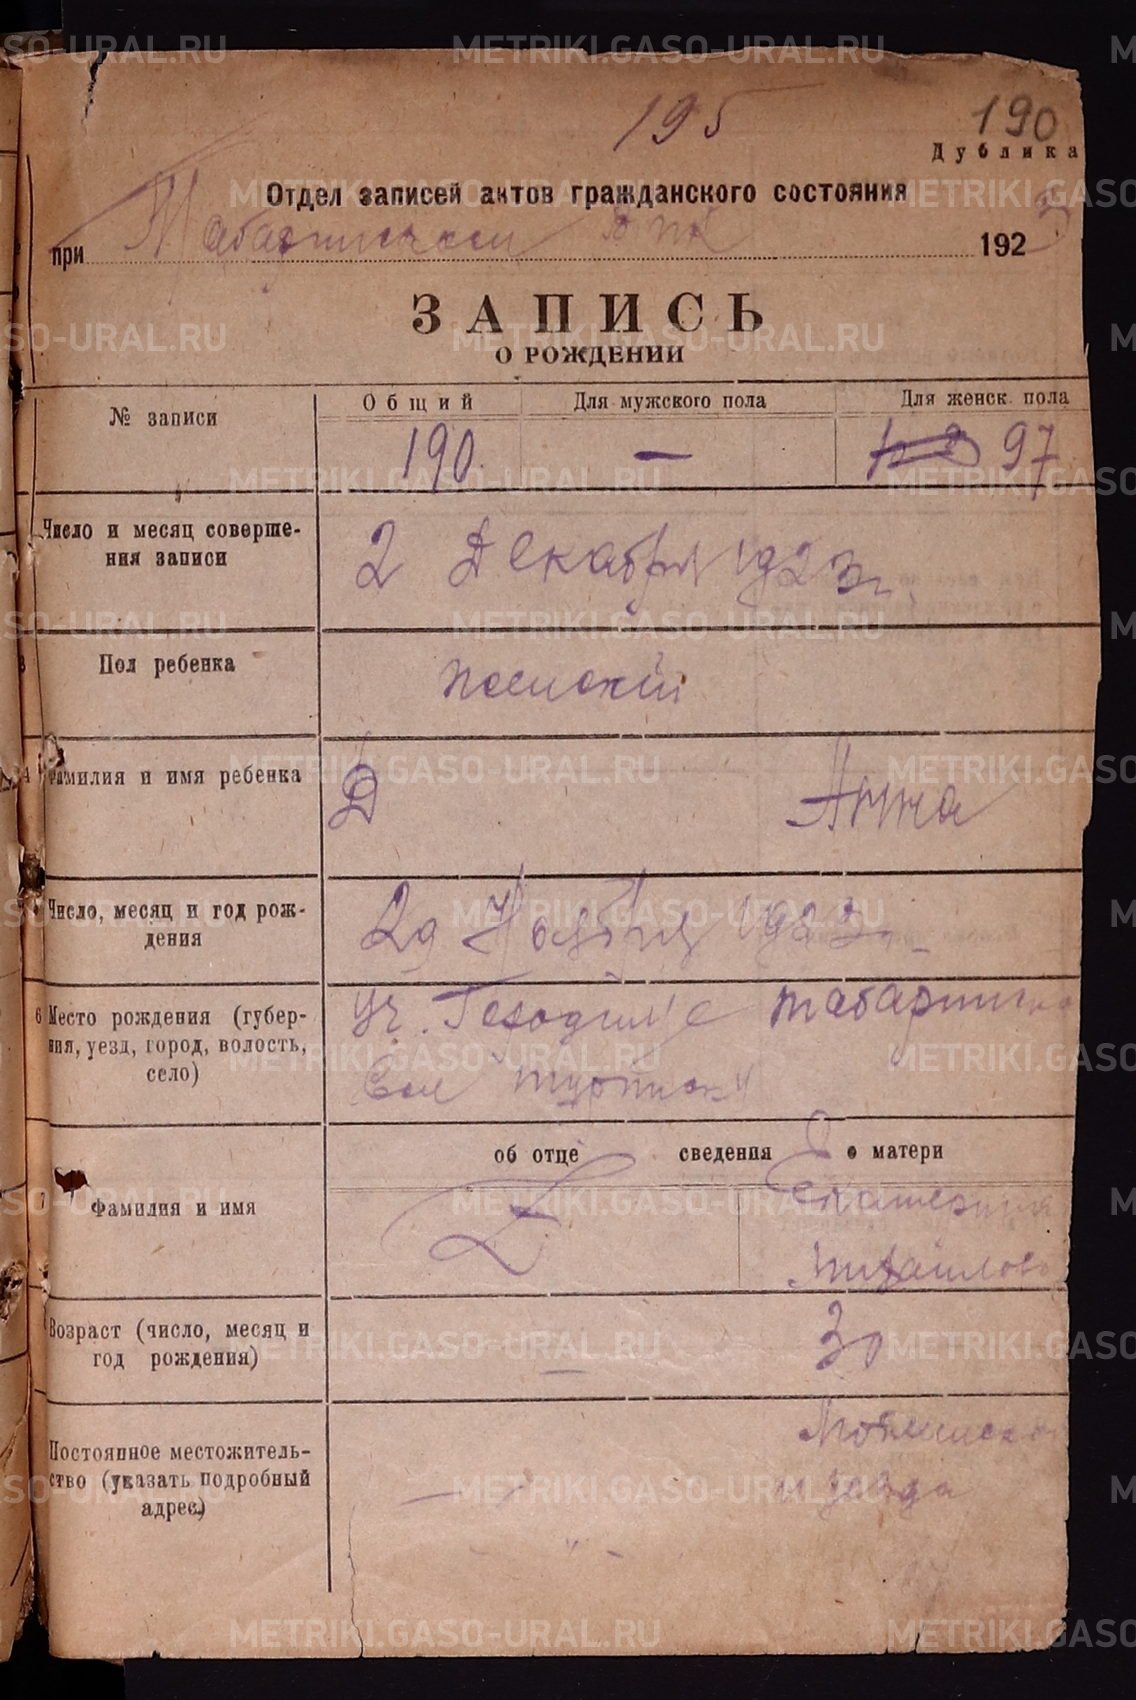 195
190
Дублика
Отдел записей актов гражданского состояния
при Табаринском ВИК 1923
ЗАПИСЬ
О РОЖДЕНИИ
№ записи
Общий
Для мужского пола
Для женск. пола
190. — 97
Число и месяц соверше-
ния записи
2 Декабря 1923 г.
Пол ребенка
женский
4 Фамилия и имя ребенка
Д Анна
Число, месяц и год рож-
дения
29 Ноября 1923 г.
6 Место рождения (губер-
ния, уезд, город, волость,
село)
уч. Табаринско
Вол
об отце сведения о матери
Фамилия и имя
Екатерина
Михайлова
Возраст (число, месяц и
год рождения)
— 30
Постоянное местожитель-
ство (указать подробный
адрес)
—
уезда
METRIKI.GASO-URAL.RU